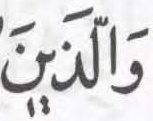 وَالَّذَيْنَ